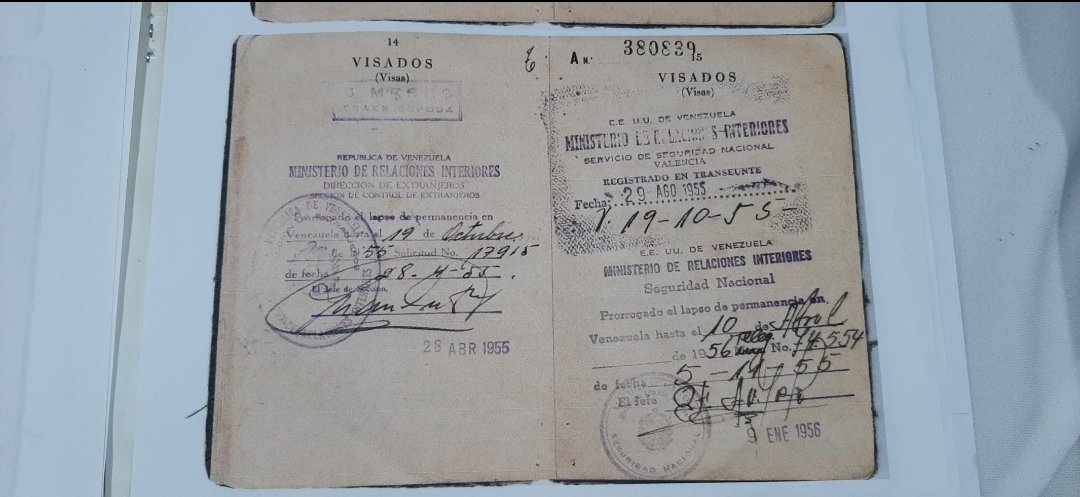 14
VISADOS
(Visas)
REPUBLICA DE VENEZUELA
MINISTERIO DE RELACIONES INTERIORES
DIRECCION DE EXTRANJEROS
SECCION DE CONTROL DE EXTRANJEROS
Prorrogado el lapso de permanencia en
Venezuela hasta el 19 de Octubre
de 55 Solicitud No. 17915
de fecha 28-4-55.
El Jefe de Sección,
28 ABR 1955
A N.º 380839
15
VISADOS
(Visas)
E.E. U.U. DE VENEZUELA
MINISTERIO DE RELACIONES INTERIORES
SERVICIO DE SEGURIDAD NACIONAL
VALENCIA
REGISTRADO EN TRANSEUNTE
Fecha: 29 AGO 1955
V. 19-10-55-
E.E. UU. DE VENEZUELA
MINISTERIO DE RELACIONES INTERIORES
Seguridad Nacional
Prorrogado el lapso de permanencia en
Venezuela hasta el 10 de Abril
de 1956 No. 74.554
de fecha 5-11-55
El Jefe
SEGURIDAD NACIONAL
9 ENE 1956